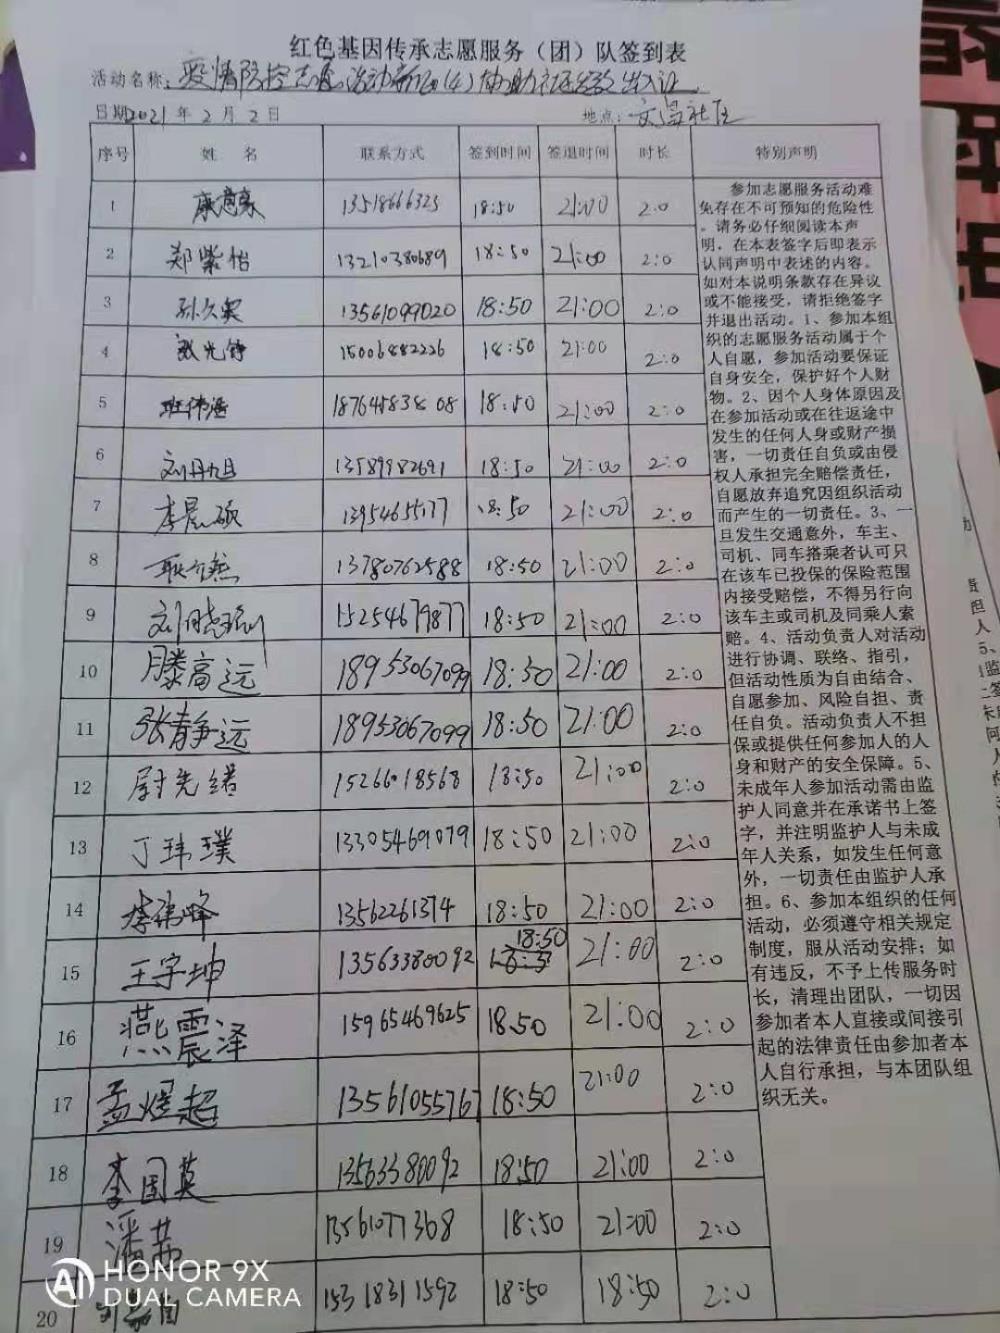 红色基因传承志愿服务（团）队签到表
活动名称：疫情防控志愿活动 (4) 协助社区 出入证
日期2021年2月2日 地点：文昌社区
序号 姓 名 联系方式 签到时间 签退时间 时长 特别声明
1 康意豪 13518666323 18:50 21:00 2:0
2 郑紫怡 13210380689 18:50 21:00 2:0
3 孙久奕 13561099020 18:50 21:00 2:0
4 15006882226 18:50 21:00 2:0
5 18:50 21:00 2:0
6 13589982691 18:50 21:00 2:0
7 李晨硕 13954655177 18:50 21:00 2:0
8 13780762588 18:50 21:00 2:0
9 15254679877 18:50 21:00 2:0
10 滕高远 18953067099 18:50 21:00 2:0
11 张静远 18953067099 18:50 21:00 2:0
12 尉先绪 15266018568 18:50 21:00 2:0
13 丁玮璞 13305469079 18:50 21:00 2:0
14 13562261374 18:50 21:00 2:0
15 王宇坤 13563380092 18:50 21:00 2:0
16 燕震泽 15965469625 18:50 21:00 2:0
17 孟煜超 13561055767 18:50 21:00 2:0
18 李国英 13563380092 18:50 21:00 2:0
19 潘茜 13561077368 18:50 21:00 2:0
20 15318311592 18:50 18:50 2:0
参加志愿服务活动难
免存在不可预知的危险性
。请务必仔细阅读本声
明，在本表签字后即表示
认同声明中表述的内容。
如对本说明条款存在异议
或不能接受，请拒绝签字
并退出活动。1、参加本组
织的志愿服务活动属于个
人自愿，参加活动要保证
自身安全，保护好个人财
物。2、因个人身体原因及
在参加活动或在往返途中
发生的任何人身或财产损
害，一切责任自负或由侵
权人承担完全赔偿责任，
自愿放弃追究因组织活动
而产生的一切责任。3、一
旦发生交通意外，车主、
司机、同车搭乘者认可只
在该车已投保的保险范围
内接受赔偿，不得另行向
该车主或司机及同乘人索
赔。4、活动负责人对活动
进行协调、联络、指引，
但活动性质为自由结合、
自愿参加、风险自担、责
任自负。活动负责人不担
保或提供任何参加人的人
身和财产的安全保障。5、
未成年人参加活动需由监
护人同意并在承诺书上签
字，并注明监护人与未成
年人关系，如发生任何意
外，一切责任由监护人承
担。6、参加本组织的任何
活动，必须遵守相关规定
制度，服从活动安排；如
有违反，不予上传服务时
长，清理出团队，一切因
参加者本人直接或间接引
起的法律责任由参加者本
人自行承担，与本团队组
织无关。
HONOR 9X
DUAL CAMERA